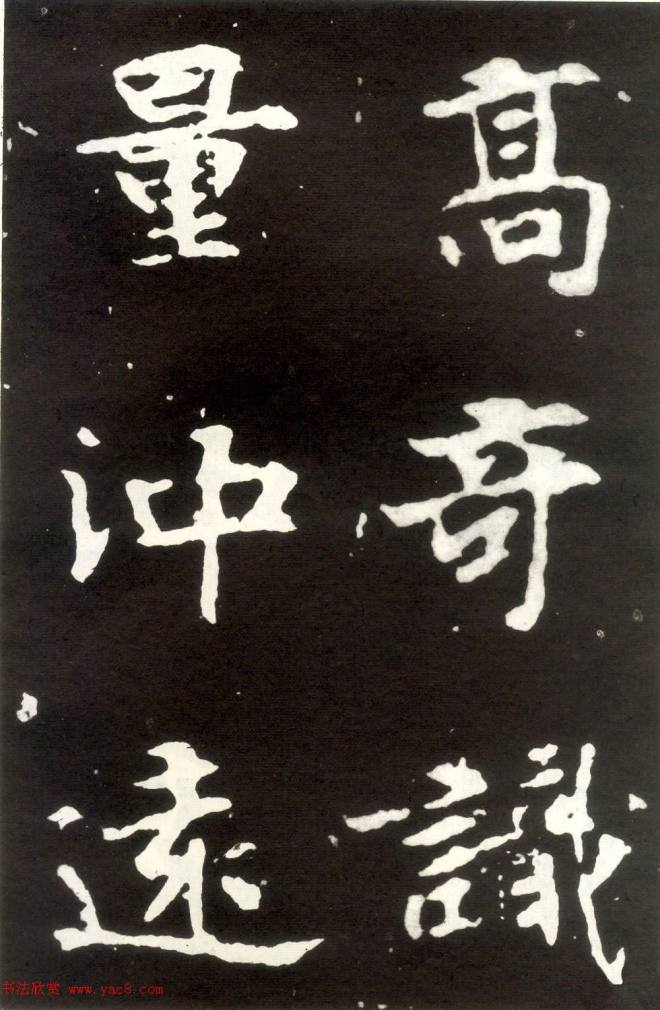 高奇識
量沖遠
书法欣赏 www.yac8.com